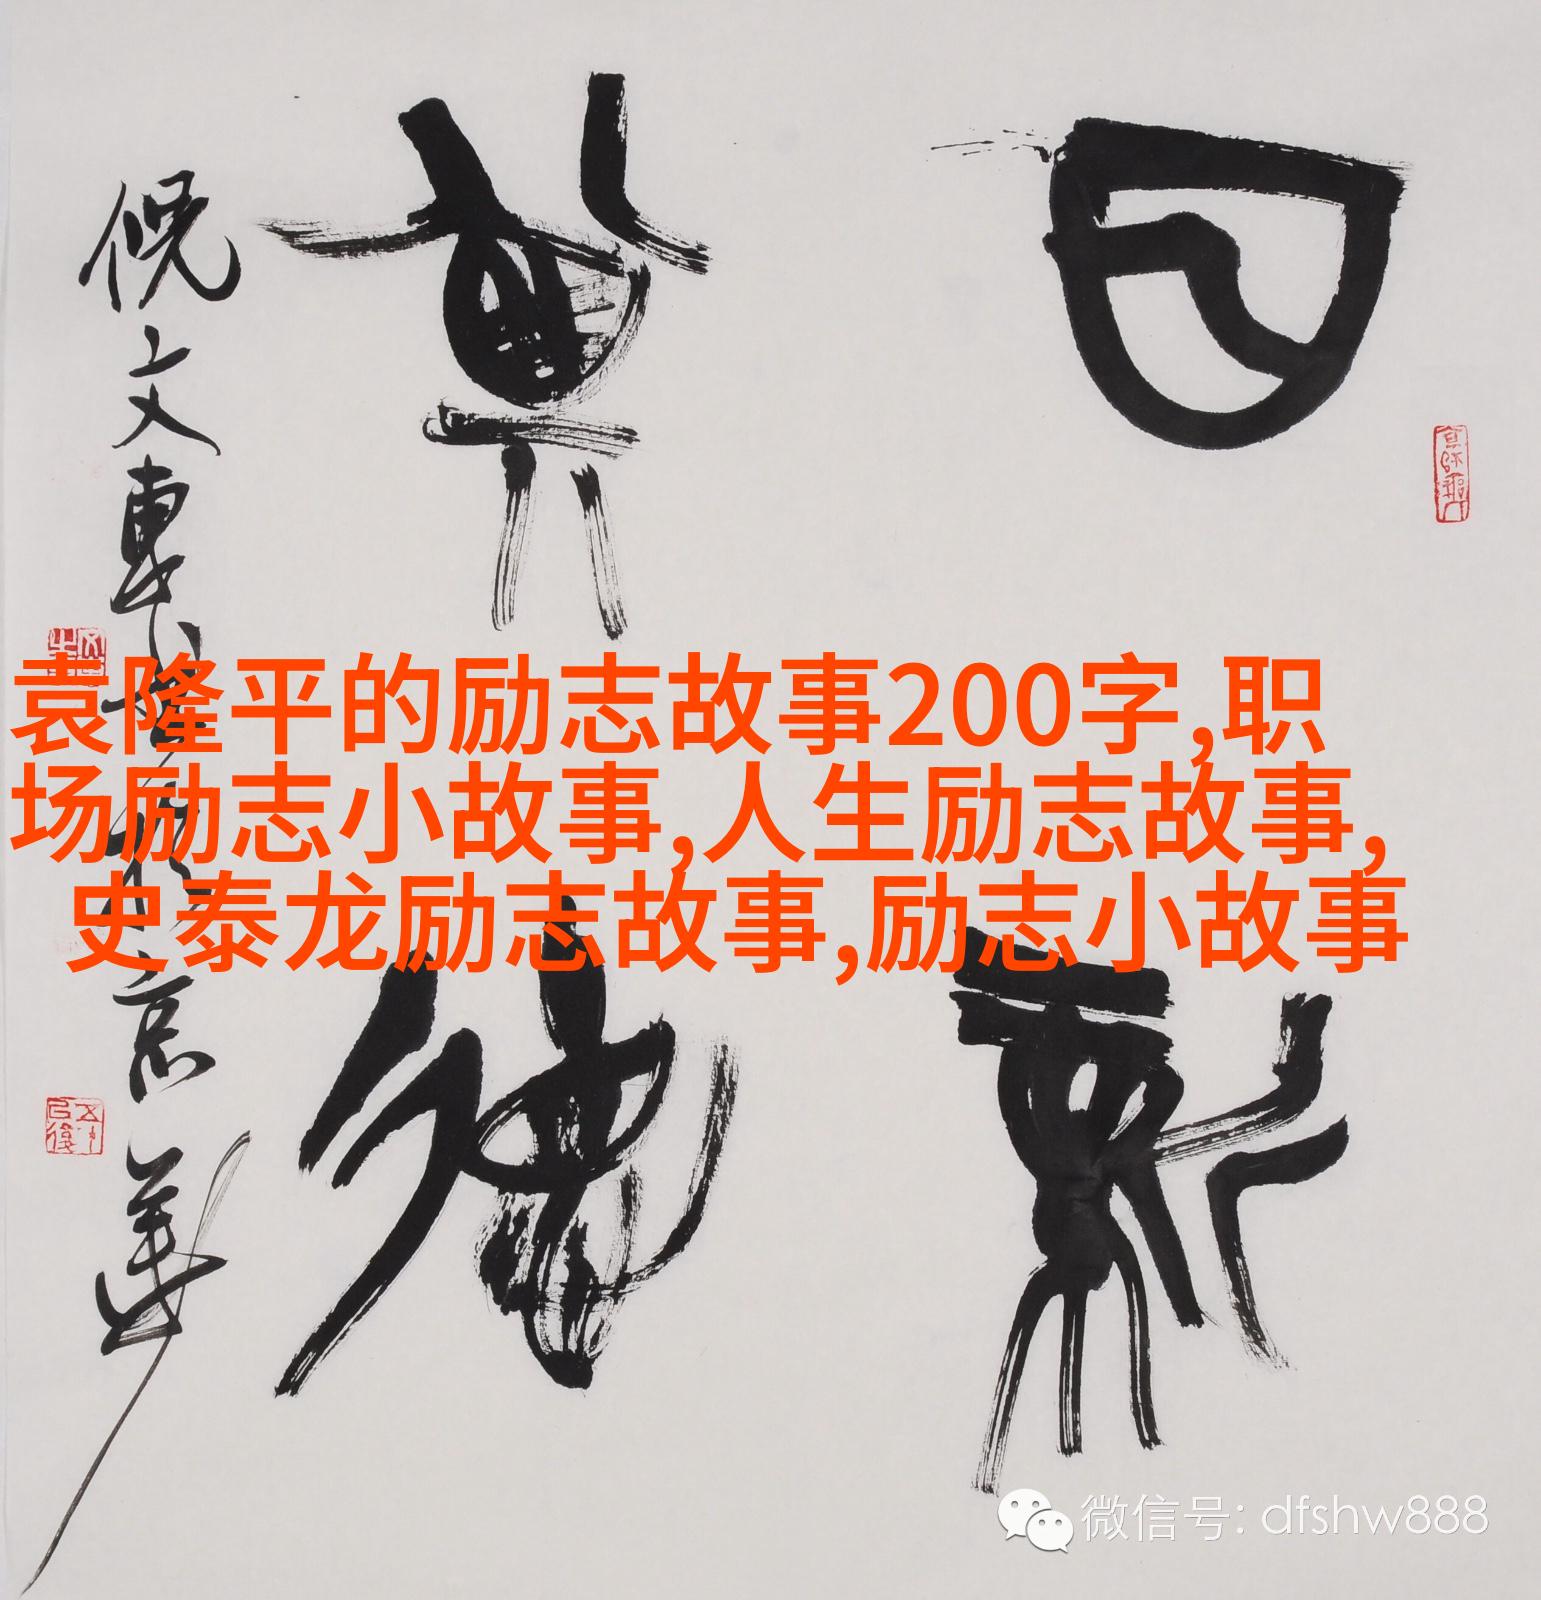 袁隆平的励志故事200字,职
场励志小故事,人生励志故事,
史泰龙励志故事,励志小故事
日新
其德
倪文東
京華
微信号: dfshw888